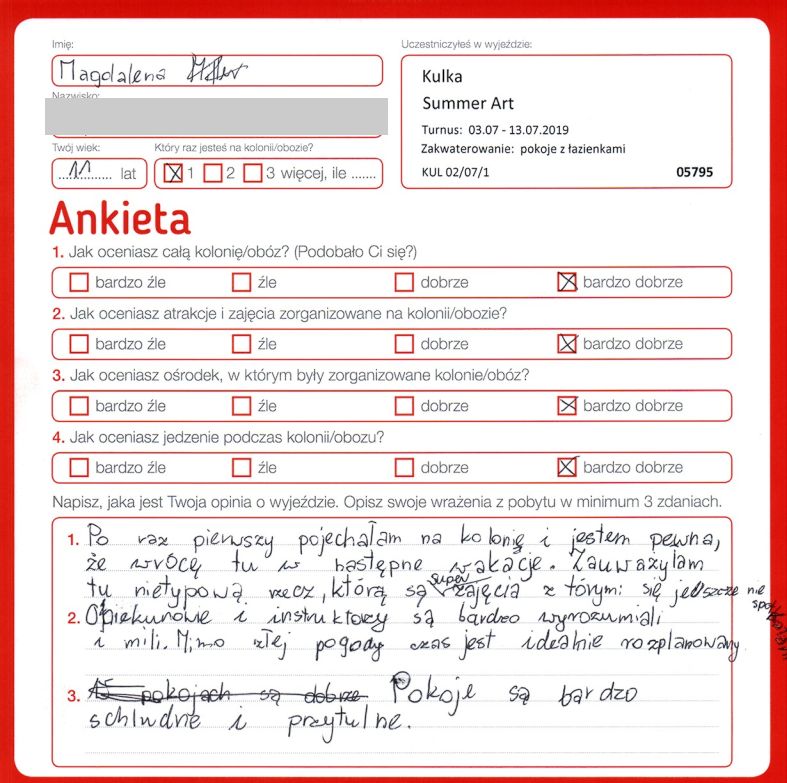 Imię:
Uczestniczyłeś w wyjeździe:
Magdalena
Kulka
Summer Art
Nazwisko:
Turnus: 03.07 - 13.07.2019
Zakwaterowanie: pokoje z łazienkami
KUL 02/07/1
05795
Twój wiek:
Który raz jesteś na kolonii/obozie?
11 lat
1 2 3 więcej, ile .......
Ankieta
1. Jak oceniasz całą kolonię/obóz? (Podobało Ci się?)
bardzo źle źle dobrze bardzo dobrze
2. Jak oceniasz atrakcje i zajęcia zorganizowane na kolonii/obozie?
bardzo źle źle dobrze bardzo dobrze
3. Jak oceniasz ośrodek, w którym były zorganizowane kolonie/obóz?
bardzo źle źle dobrze bardzo dobrze
4. Jak oceniasz jedzenie podczas kolonii/obozu?
bardzo źle źle dobrze bardzo dobrze
Napisz, jaka jest Twoja opinia o wyjeździe. Opisz swoje wrażenia z pobytu w minimum 3 zdaniach.
1. Po raz pierwszy pojechałam na kolonię i jestem pewna,
że wrócę tu w następne wakacje. Zauważyłam
tu nietypową rzecz, którą są super zajęcia z tórymi się jeszcze nie
2. Opiekunowie i instruktorzy są bardzo wyrozumiali
i mili. Mimo złej pogody czas jest idealnie rozplanowany.
3. pokojach są dobrze Pokoje są bardzo
schludne i przytulne.